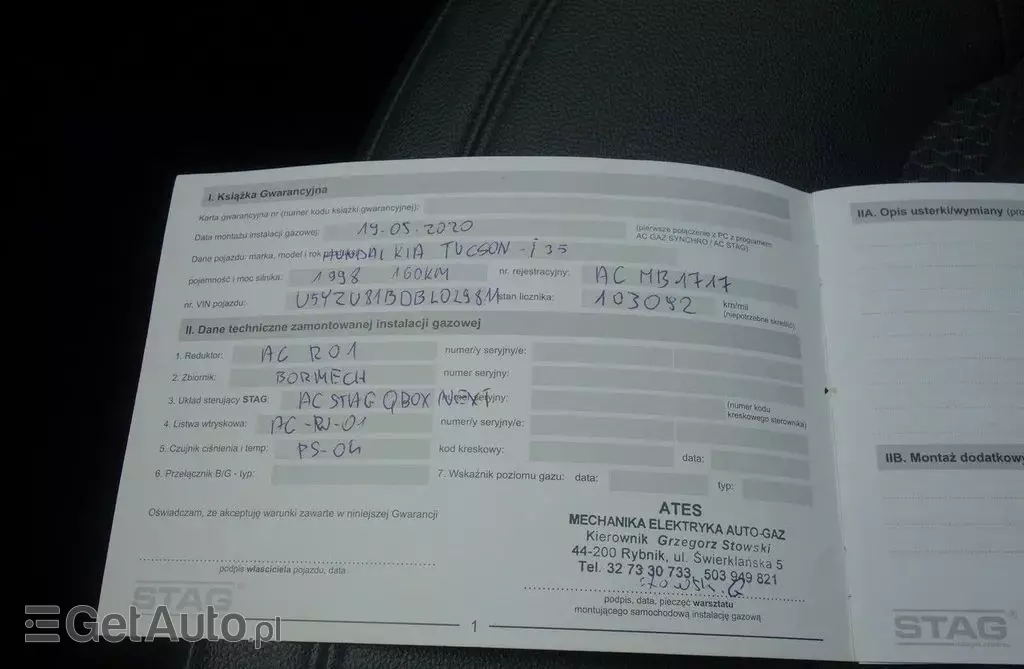 I. Książka Gwarancyjna
Karta gwarancyjna nr (numer kodu książki gwarancyjnej):
Data montażu instalacji gazowej: 19-05-2020 (pierwsze połączenie z PC z programem
AC GAZ SYNCHRO / AC STAG)
Dane pojazdu: marka, model i rok HUNDAI KIA TUCSON - i 35
pojemność i moc silnika: 1998 160KM nr. rejestracyjny: AC MB1717
nr. VIN pojazdu: stan licznika: 103092 km/mil
(niepotrzebne skreślić)
II. Dane techniczne zamontowanej instalacji gazowej
1. Reduktor: AC R01 numer/y seryjny/e:
2. Zbiornik: BORMECH numer seryjny:
3. Układ sterujący STAG: AC STAG QBOX NEXT seryjny: (numer kodu
kreskowego sterownika)
4. Listwa wtryskowa: numer/y seryjny/e:
5. Czujnik ciśnienia i temp: PS-04 kod kreskowy: data:
6. Przełącznik B/G - typ: 7. Wskaźnik poziomu gazu: data: typ:
Oświadczam, że akceptuję warunki zawarte w niniejszej Gwarancji
podpis właściciela pojazdu, data
ATES
MECHANIKA ELEKTRYKA AUTO-GAZ
Kierownik Grzegorz Stowski
44-200 Rybnik, ul. Świerklańska 5
Tel. 32 73 30 733, 503 949 821
podpis, data, pieczęć warsztatu
montującego samochodową instalację gazową
STAG
1
IIA. Opis usterki/wymiany (pro
IIB. Montaż dodatkowy
STAG
GetAuto.pl